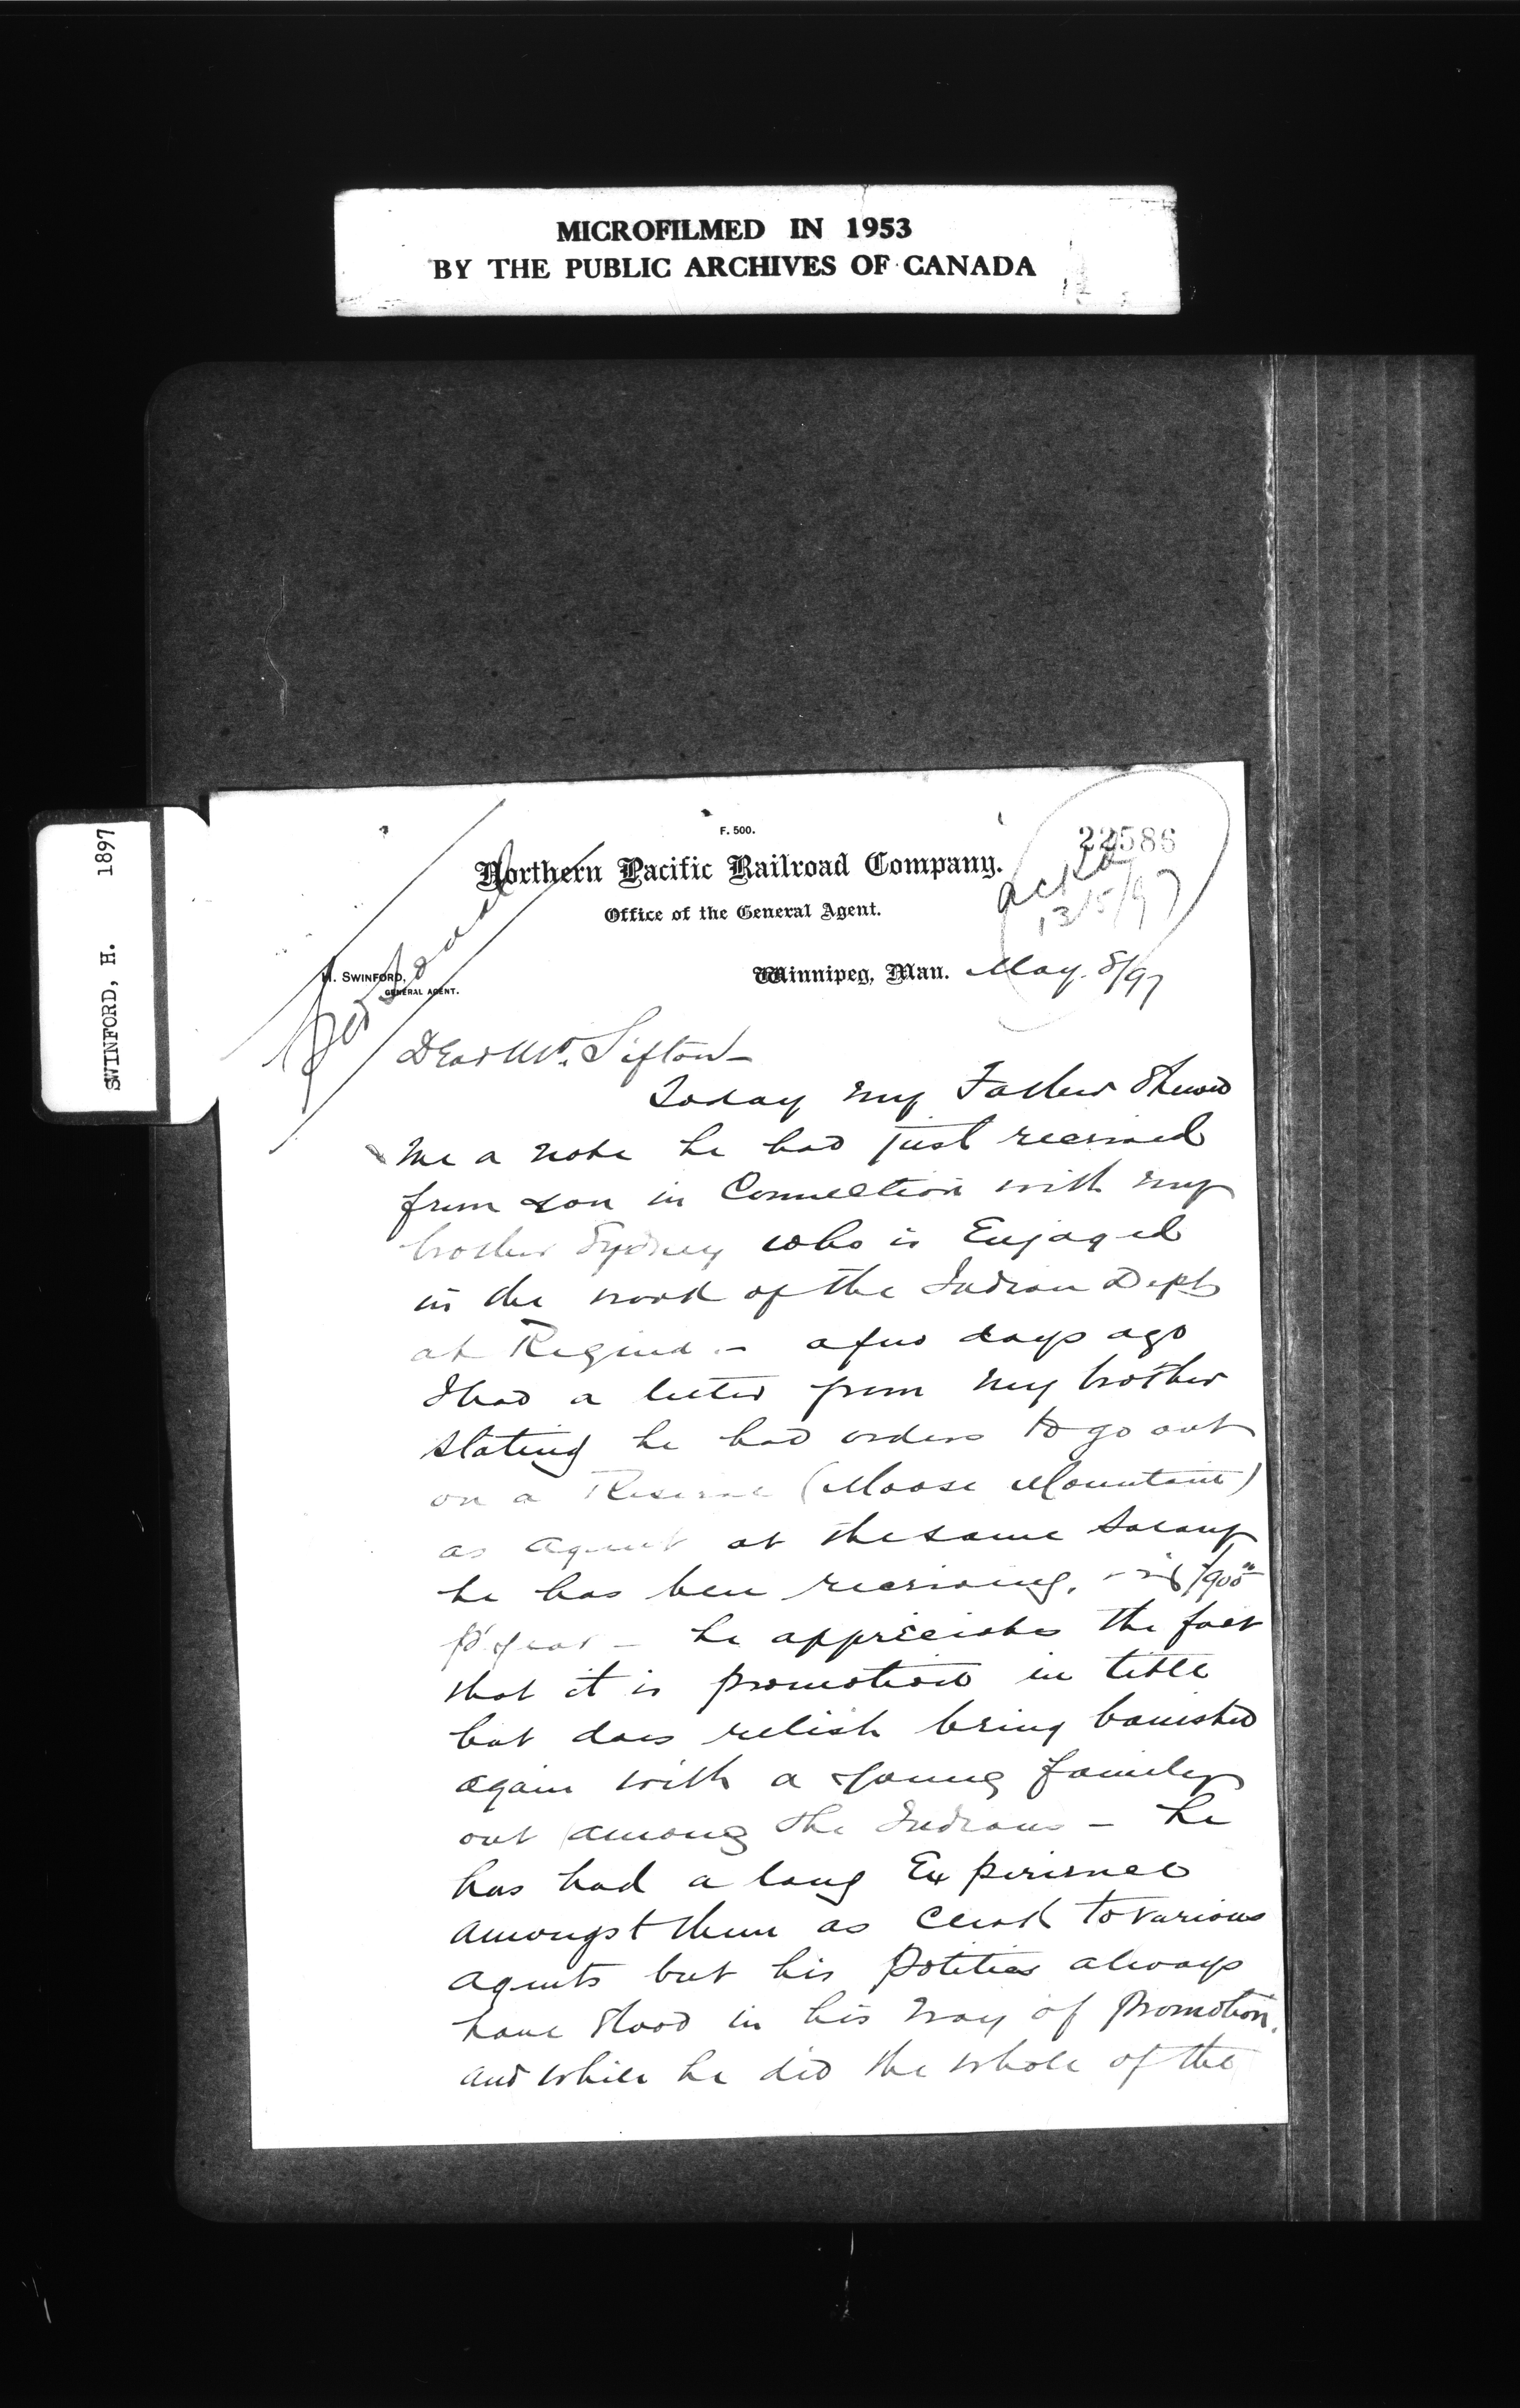 MICROFILMED IN 1953
BY THE PUBLIC ARCHIVES OF CANADA
SWINFORD, H. 1897
F. 500.
22586
Northern Pacific Railroad Company.
Office of the General Agent.
ackd
13/5/97
H. SWINFORD,
GENERAL AGENT.
Personal
Winnipeg, Man. May. 8/97
Dear Mr. Sifton—
Today my Father shewed
me a note he had just received
from you in Connection with my
brother Sydney who is Engaged
in the work of the Indian Dept
at Regina. — a few days ago
I had a letter from my brother
stating he had orders to go out
on a Reserve (Moose Mountain)
as agent at the same Salary
he has been receiving, - $900
pr year — he appreciates the fact
that it is promotion in title
but does relish being banished
again with a young family
out among the Indians — he
has had a long Experience
amongst them as Clerk to various
agents but his politics always
have stood in his way of promotion.
and while he did the whole of the